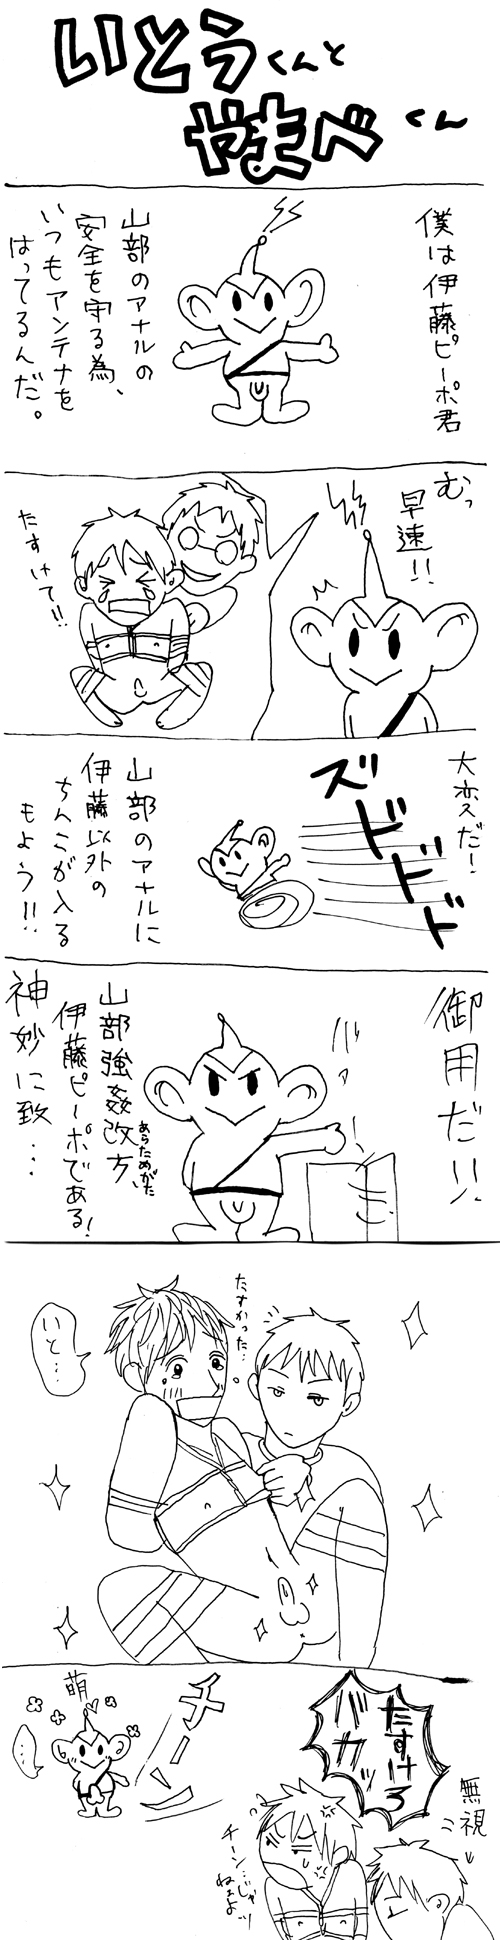 いとうくんと
やまべくん
僕は伊藤ピーポ君
山部のアナルの
安全を守る為、
いつもアンテナを
はってるんだ。
むっ
早速!!
たすけて!!
大変だ!
ズドドドド
山部のアナルに
伊藤以外の
ちんこが入る
もよう!!
御用だ!!
山部強姦改方、
あらためがた
伊藤ピーポである!
神妙に致…
たすかった…
いと…
たすけろ
バカッ
無視
チーン…じゃ
ねぇよッ
チーン
萌
…